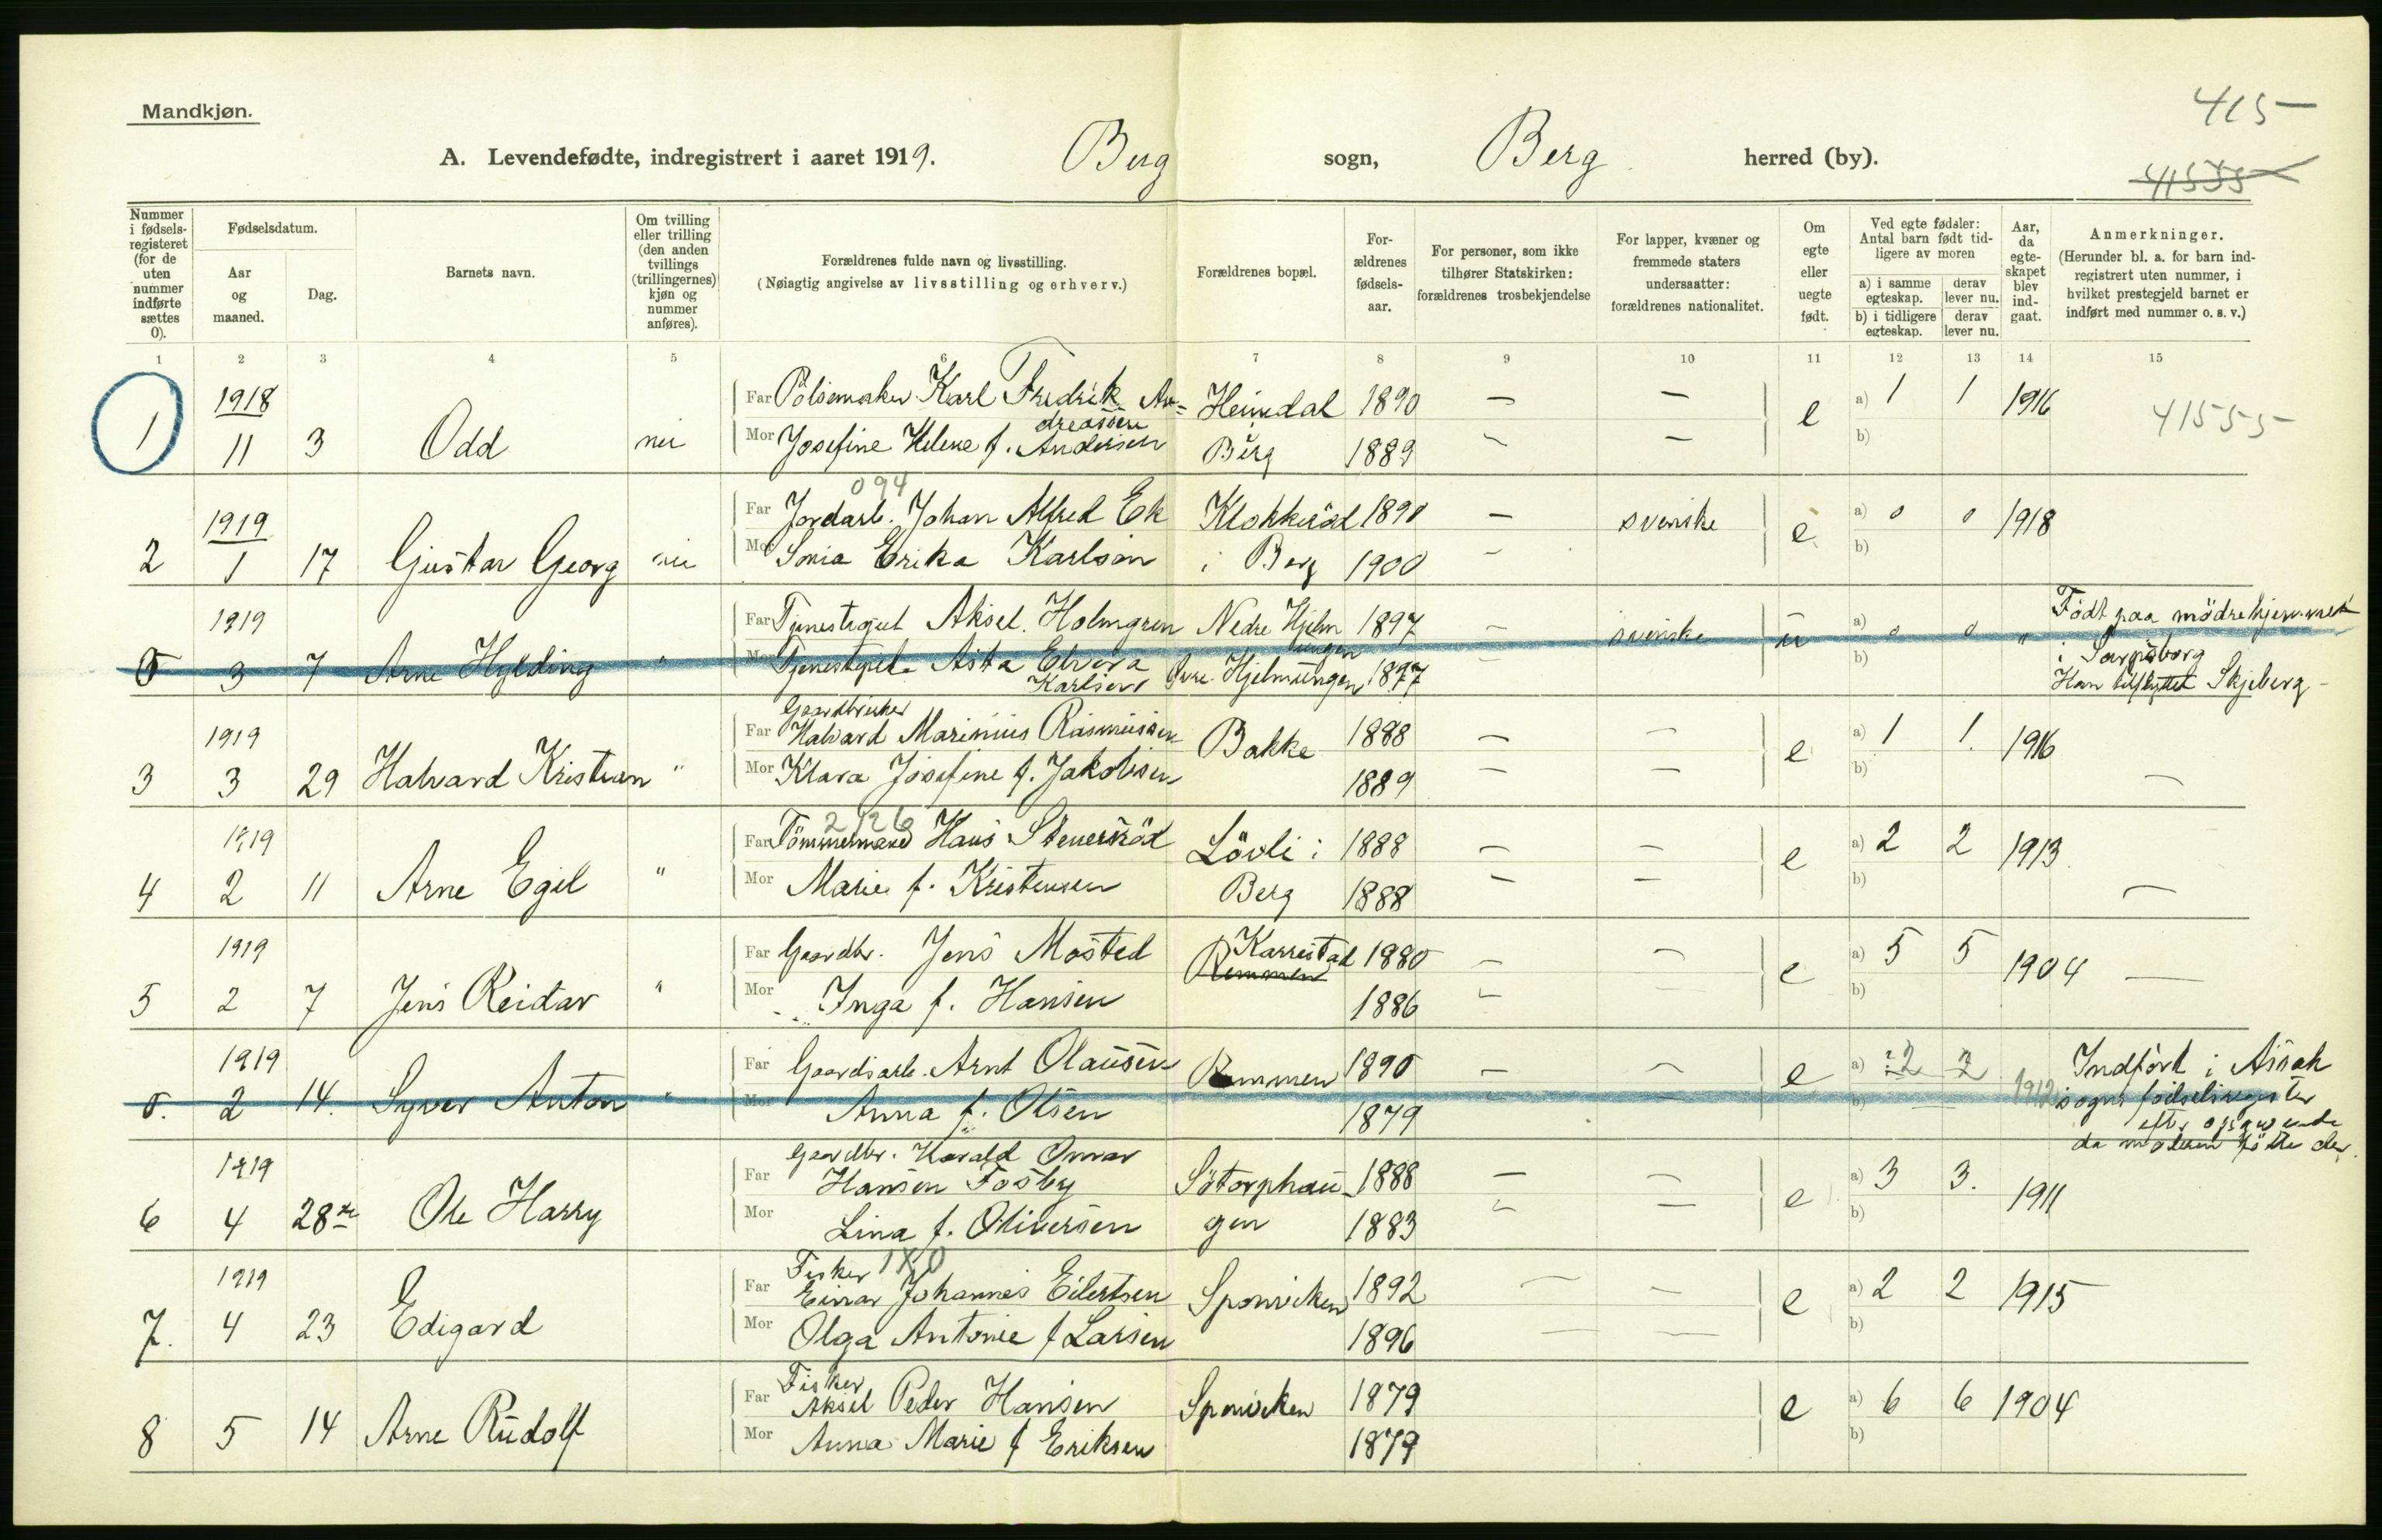 Mandkjøn.
415-
A. Levendefødte, indregistrert i aaret 1919. Berg sogn, Berg herred (by).
41555
Nummer i fødselsregisteret (for de uten nummer indførte sættes 0).
Fødselsdatum.
Aar og maaned.
Dag.
Barnets navn.
Om tvilling eller trilling (den anden tvillings (trillingernes) kjøn og nummer anføres).
Forældrenes fulde navn og livsstilling.
(Nøiagtig angivelse av livsstilling og erhverv.)
Forældrenes bopæl.
Forældrenes fødselsaar.
For personer, som ikke tilhører Statskirken: forældrenes trosbekjendelse
For lapper, kvæner og fremmede staters undersaatter: forældrenes nationalitet.
Om egte eller uegte født.
Ved egte fødsler: Antal barn født tidligere av moren
a) i samme egteskap. derav lever nu.
b) i tidligere egteskap. derav lever nu.
Aar, da egteskapet blev indgaat.
Anmerkninger.
(Herunder bl. a. for barn indregistrert uten nummer, i hvilket prestegjeld barnet er indført med nummer o. s. v.)
1 2 3 4 5 6 7 8 9 10 11 12 13 14 15
1918 Far Pölsemaker Karl Fredrik An= Heimdal 1890 — — a) 1 1 1916
dreassen
1 11 3 Odd nei Mor Josefine Helene f. Andersen Berg 1889 — — e b) 41555
094
1919 Far Jordarb. Johan Alfred Ek Klokkeröd 1890 — svenske a) 0 0 1918
2 1 17 Gustav Georg nei Mor Sonia Erika Karlson i Berg 1900 — e b)
1919 Far Tjenestegut Aksel Holmgren Nedre Hjelmungen 1897 — svenske u a) 0 0 " Födt paa mödrehjem
0 3 7 Arne Hylding " Mor Tjenestepike Asta Elvira Karlsen Övre Hjelmungen 1897 — b) i Sarpsborg
Skjeberg -
Gaardbruker
1919 Far Halvard Marinius Rasmussen Bakke 1888 — — a) 1 1. 1916
3 3 29 Halvard Kristian " Mor Klara Josefine f. Jakobsen 1889 — — e b) —
2126
1919 Far Tömmermand Hans Stenersköd Lövli i 1888 — — a) 2 2 1913
4 2 11 Arne Egil " Mor Marie f. Kristensen Berg 1888 — — e b) —
1919 Far Gaardbr. Jens Mosted Karrestad 1880 — — a) 5 5 1904 —
Remmen
5 2 7 Jens Reidar " Mor Inga f. Hansen 1886 — — e b)
1919 Far Gaardsarb. Arnt Olausen Remmen 1890 — — e a) 2 2 1912 Indfört i Assak
0. 2 14. Syver Anton " Mor Anna f. Olsen 1879 b) — sogns födselsregister
efter opgivende
da moderen födte der.
Gaardbr. Harald Omar
1919 Far Hansen Fosby Sötorphau- 1888 — — a) 3 3. 1911
6 4 28de Ole Harry Mor Lina f. Oliversen gen 1883 — — e b)
Fisker 180
1919 Far Einar Johannes Eilertsen Sponviken 1892 — — a) 2 2 1915
7. 4 23 Edigard Mor Olga Antonie f Larsen 1896 — — e b)
Fisker
Far Aksel Peder Hansen Sponviken 1879 e a) 6 6 1904
8 5 14 Arne Rudolf Mor Anna Marie f Eriksen 1879 b)